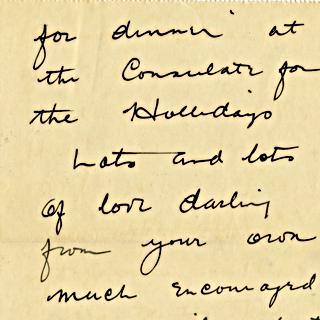 for dinner at
the Consulate for
the Hollidays
Lots and lots
of love darling
from your own
much encouraged